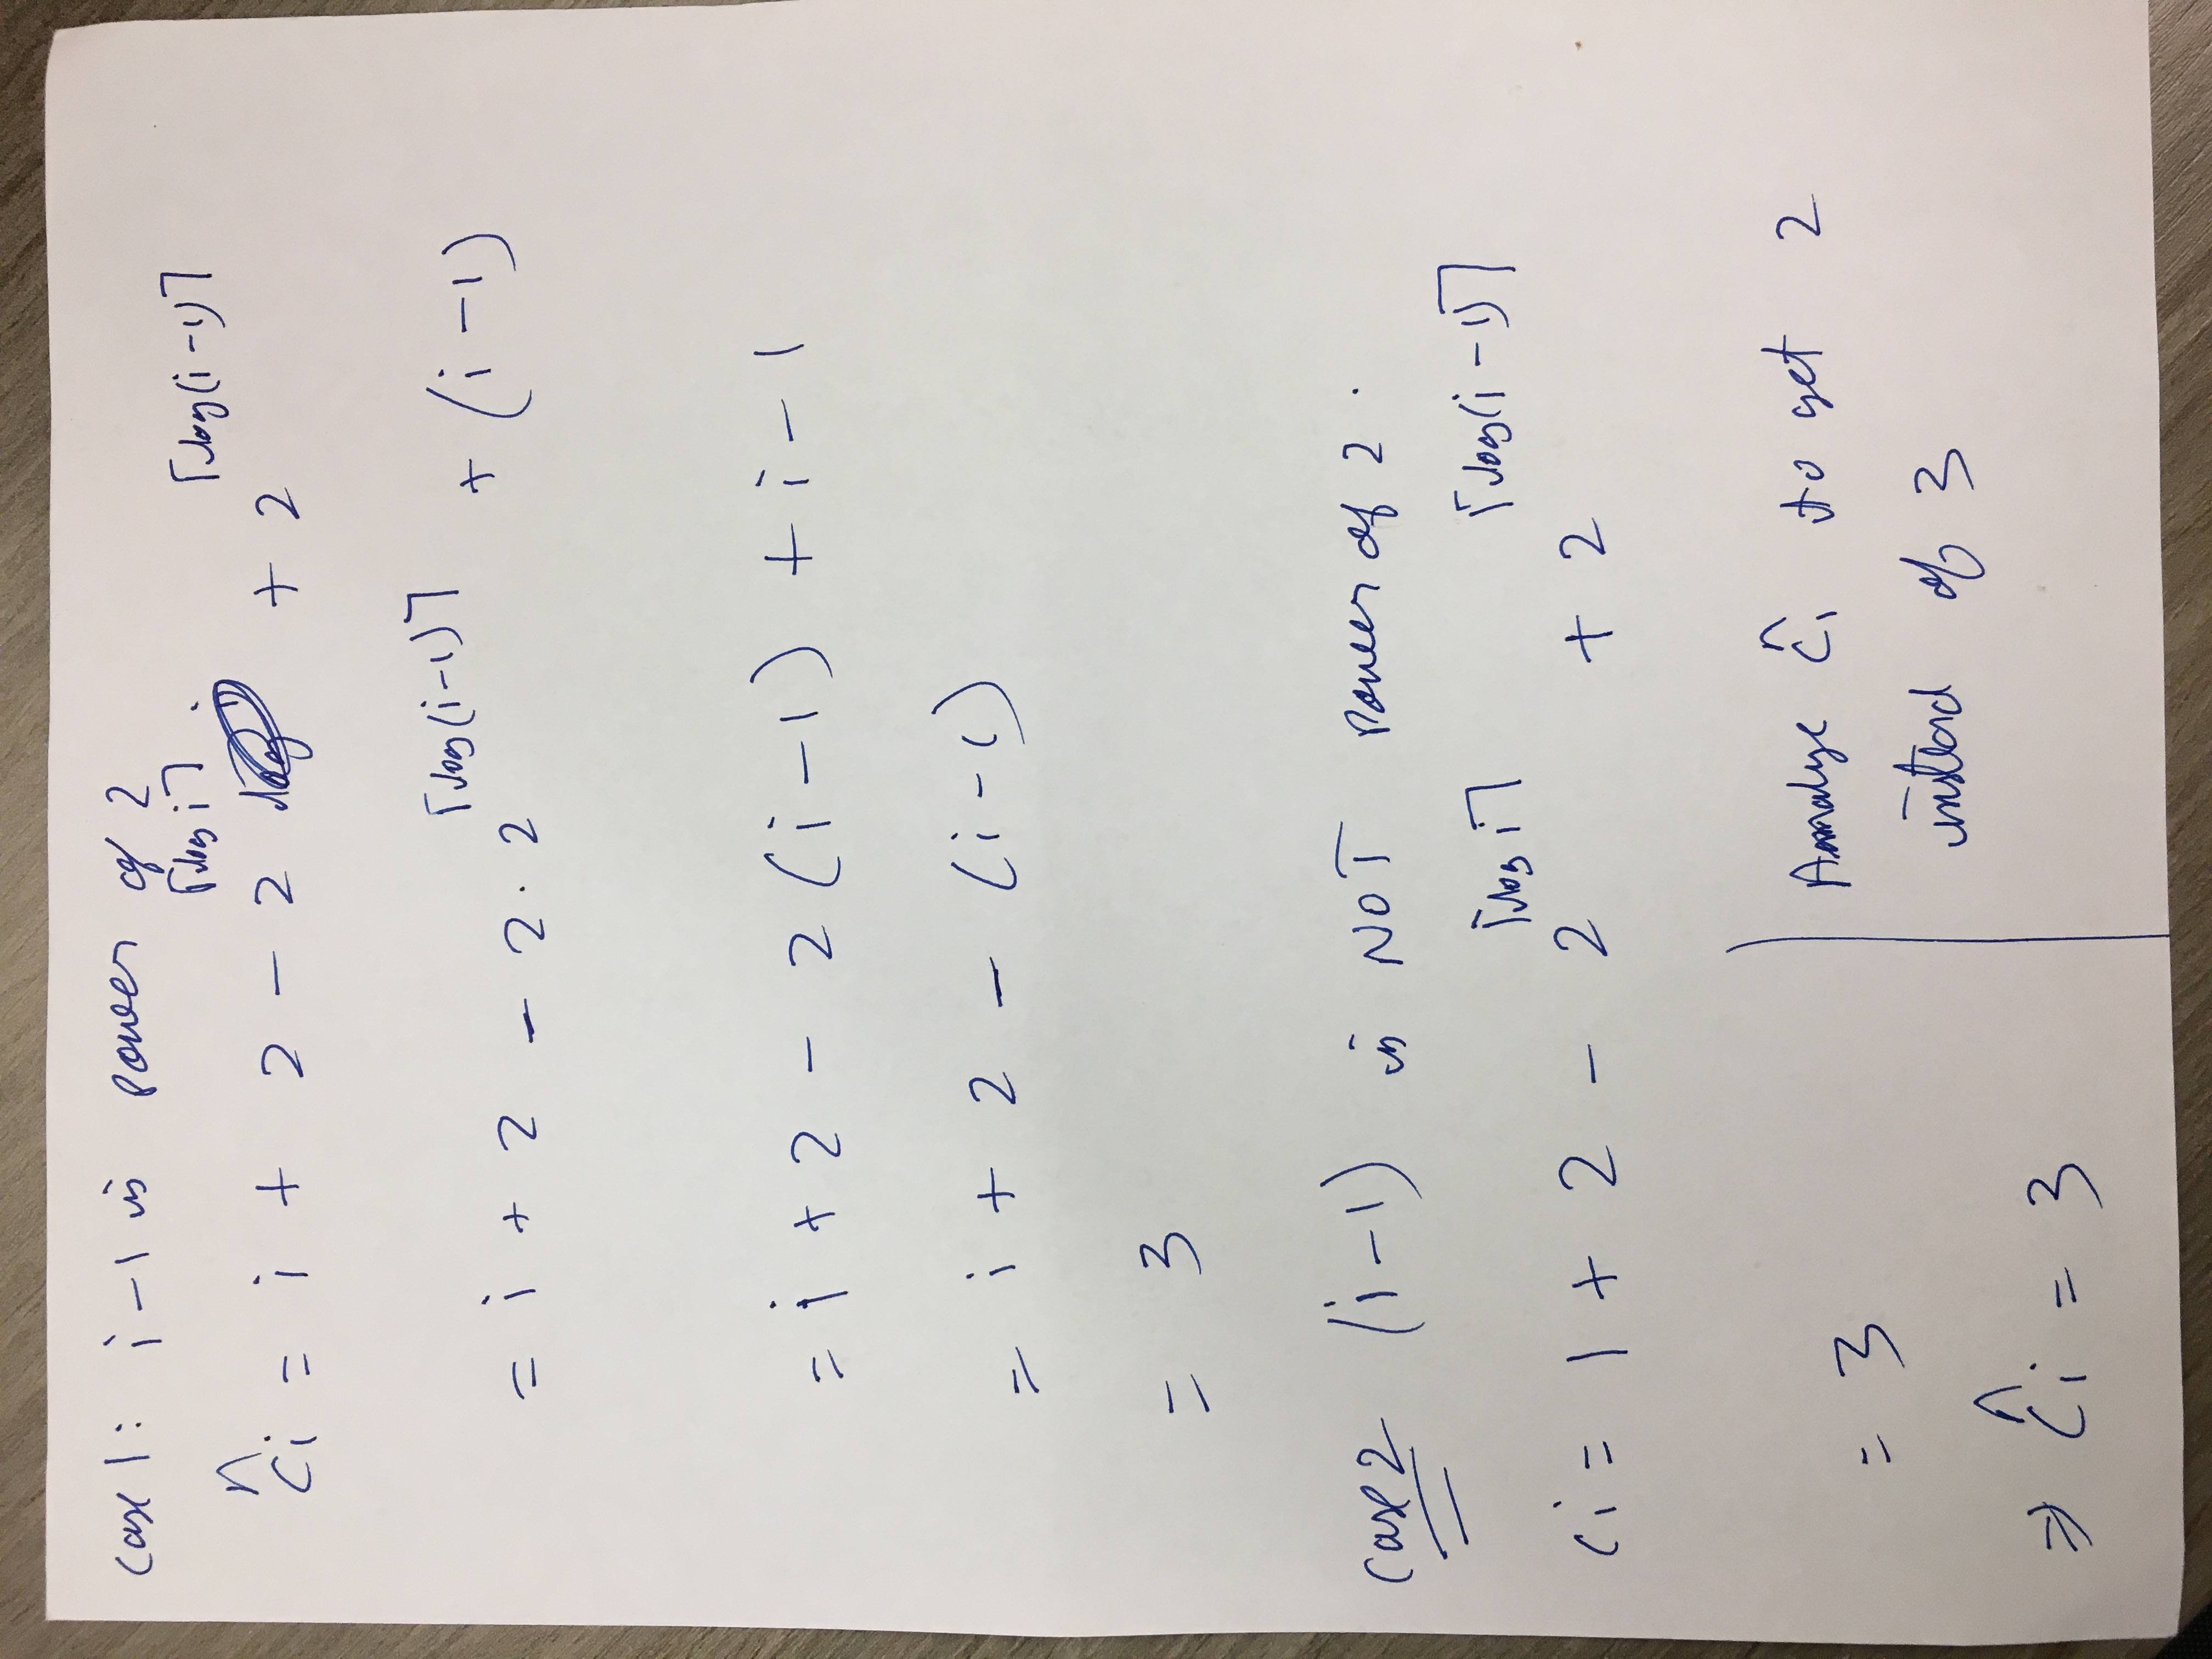 Case 1: i-1 is power of 2
ĉi = i + 2 - 2^⌈log i⌉ + 2^⌈log(i-1)⌉
= i + 2 - 2·2^⌈log(i-1)⌉ + (i-1)
= i + 2 - 2(i-1) + i-1
= i + 2 - (i-1)
= 3
Case 2 (i-1) is NOT power of 2.
ci = 1 + 2 - 2^⌈log i⌉ + 2^⌈log(i-1)⌉
= 3
⇒ ĉi = 3
Analyse ĉi to get 2
instead of 3